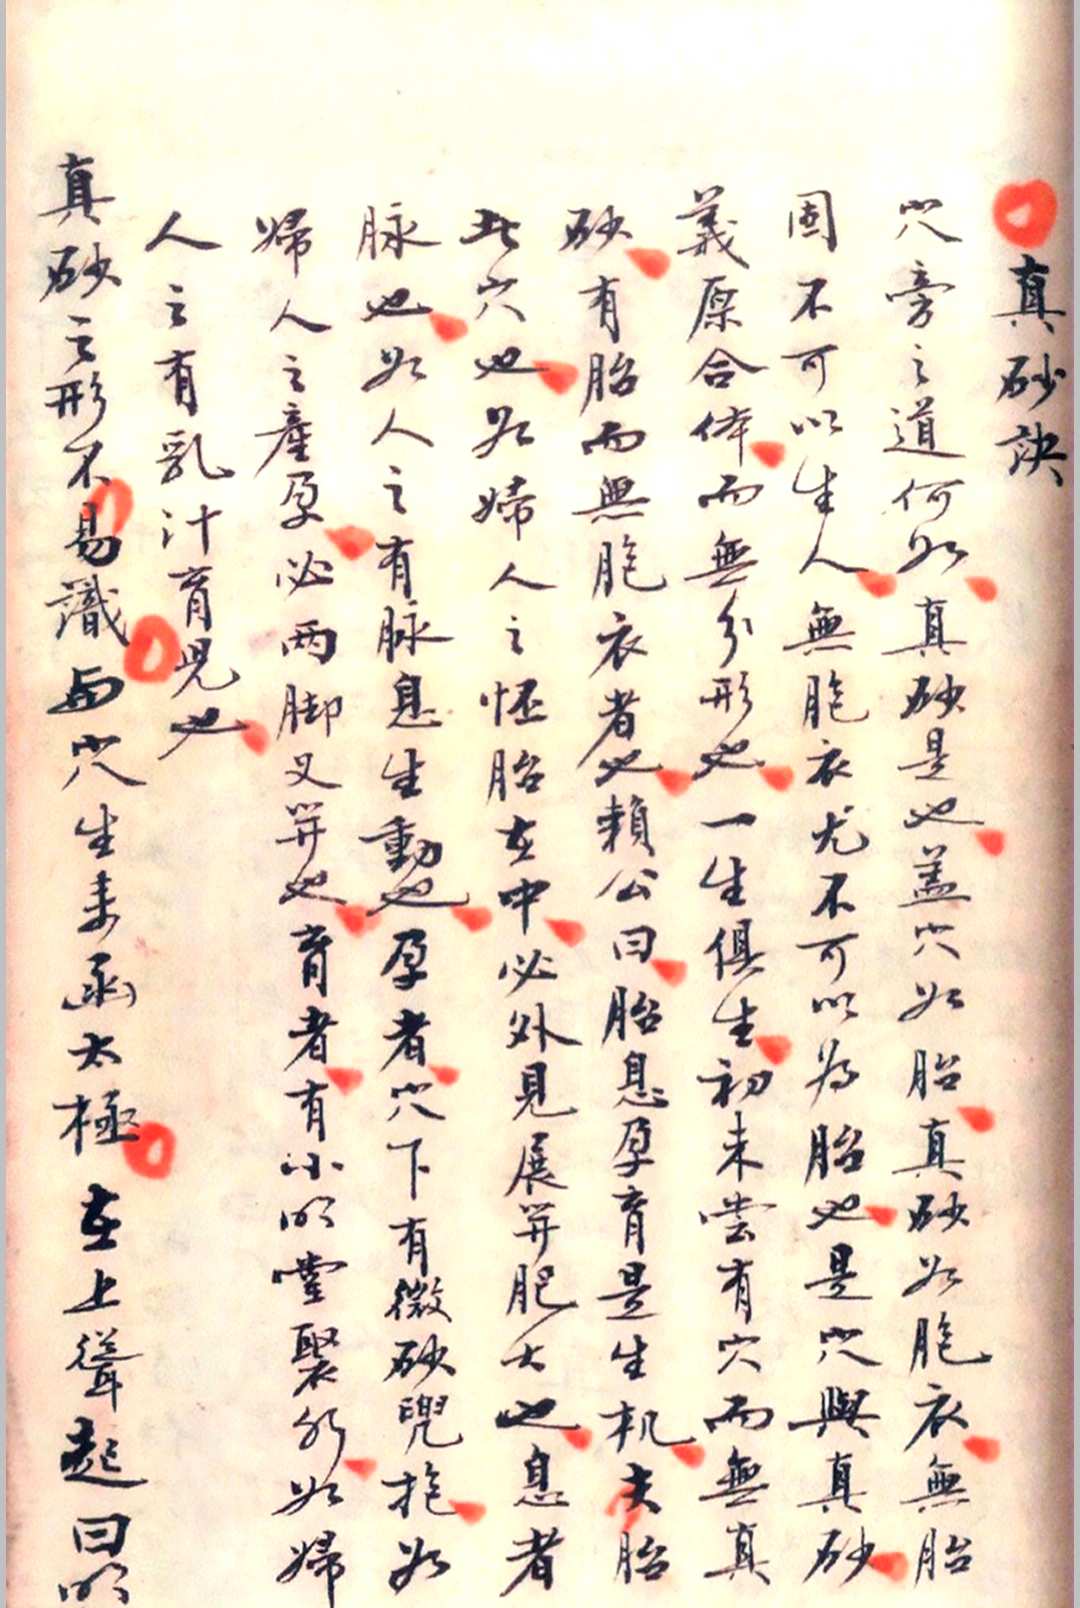 真砂訣
穴旁之道何如真砂是也蓋穴如胎真砂如胞衣無胎
固不可以生人無胞衣尤不可以為胎也是穴與真砂
義原合体而無分形也一生俱生初未嘗有穴而無真
砂有胎而無胞衣者也賴公曰胎息孕育是生机夫胎
此穴也如婦人之怀胎在中必外見展開肥大也息者
脉也如人之有脉息生動也孕者穴下有微砂兜抱如
婦人之產孕必两脚叉開也育者有小明堂聚水如婦
人之有乳汁育兒也
真砂之形不易識与穴生來函太極在上聳起曰明